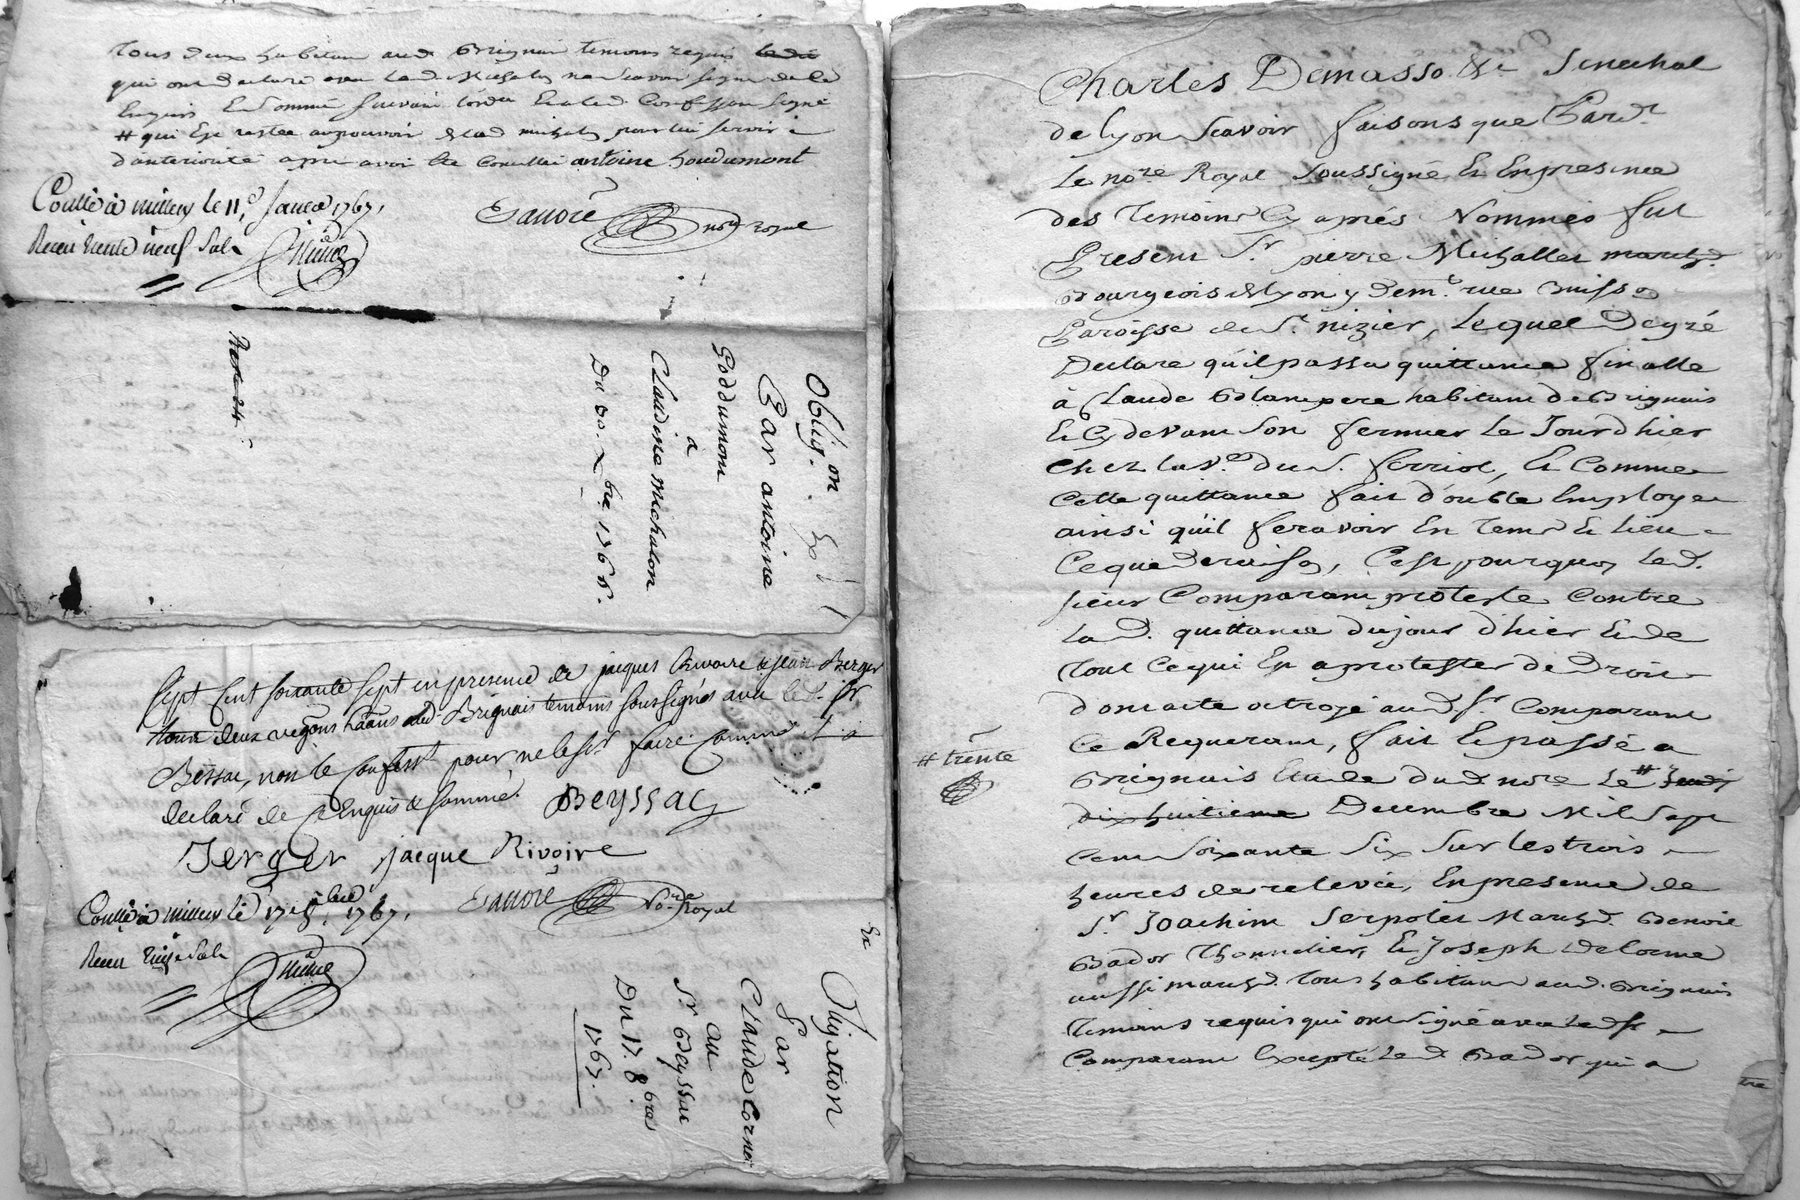 tous deux habitans aud Brignais temoins requis
qui ont declaré avec lad. Michalon ne scavoir signer de ce
Enquis Et Sommé suivant l'ordce Et aled. Confessan signé
# qui Est restée aupouvoir de lad michalon pour lui servir
d'anteriorité apres avoir été antoine Goudumont
Conllé à millery le 11e Janer 1767,
Receu trente neuf Sols
not royal
Oblig.on
Par antoine
Goddumont
a
Claudine michalon
Du 30. xbre. 1766.
Sept Cent soixante Sept en presence de jaques Rivoire & Jean Berger
tous deux habans aud Brignais temoins soussignés avec le d. sr
Bessac, non le Confesst pour ne le scr faire comme il a
declaré de ce Enquis & sommé. Beyssac
Berger jacque Rivoire
Conllé à millery le 1767,
Receu Sols
Nore Royal
Obligation
Par
Claude Cornet
au
Sr Beyssac
Du 17. 8bre
1767.
Charles Demasso &c Senechal
de lyon Scavoir faisons que Pardt
Le nore Royal Soussigné Et Enpresence
des temoins Cy aprés Nommés fut
Present Sr. pierre Michallet marchd.
Bourgeois de lyon y demt rue Buisson
Paroisse de St. nizier, Lequel Degré
Declare qu'il passa quittance finalle
à Claude Blampere habitant de Brignais
Et Cy devant Son fermier Le Jourdhier
Chez la ve. du s. ferriot, Et Comme
Cette quittance fait d'ouble Employe
ainsi qu'il feravoir En tems Et lieu
Ceque Deraison, C'est pourquoy Led.
sieur Comparant proteste Contre
Lad. quittance dujour d'hier Et de
tout Cequi En aprotester de Droit
dont acte octroyé aud. sr Comparant
Ce Requerant, fait Et passé a
Brignais Etude dud nore Le # Jeudi
# trente
dixhuitieme Decembre Mil Sept
Cent Soixante Six Sur les trois
heures de relevée, Enpresence de
Sr. Joachim Serpolet Marchd. Benoit
Bador Thonnelier, Et Joseph Delorme
aussi marchd. tous habitans aud. Brignais
temoins requis qui ont signé avec Led sr
Comparant Excepté Led Bador qui a